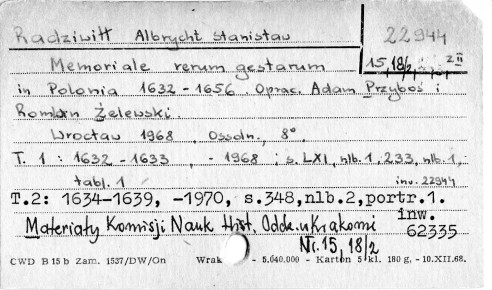 Radziwiłł Albrycht Stanisław
22944
Memoriale rerum gestarum
15, 18/1 z II
in Polonia 1632-1656. Oprac. Adam Przyboś i
Roman Żelewski.
Wrocław 1968, Ossoln., 8°,
T. 1 : 1632-1633, - 1968 ; s. LXI, nlb. 1, 233, nlb. 1,
tabl. 1
inw. 22944
T.2: 1634-1639, -1970, s.348, nlb.2, portr.1.
Materiały Komisji Nauk Hist. Oddz. w Krakowie
inw.
62335
Nr. 15, 18/2
CWD B 15 b Zam. 1537/DW/On - 5.640.000 - Karton 5 kl. 180 g. - 10.XII.68.